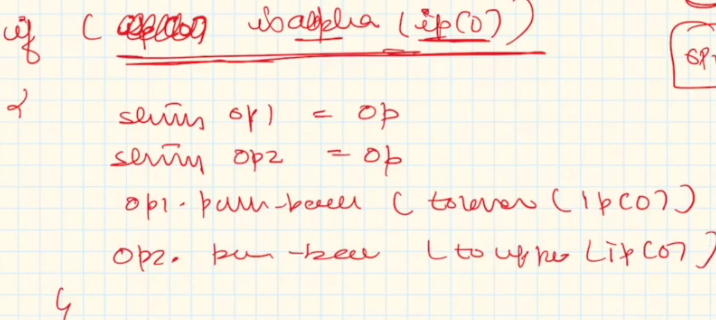 if ( isalpha (ip[0]))
OP
{
string op1 = op
string op2 = op
op1.push-back ( tolower (ip[0])
op2. push-back ( toupper (ip[0])
}